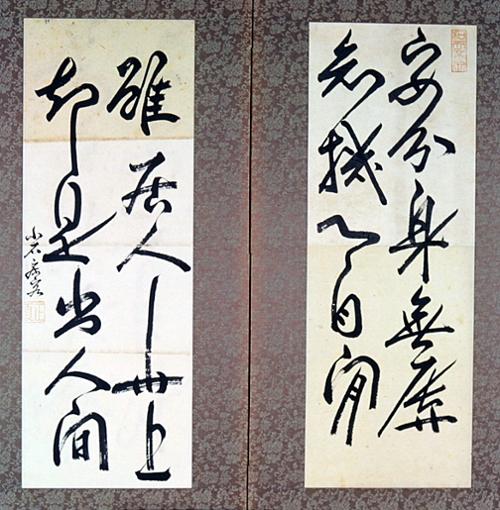 安分身無辱
知機心自閒
雖居人世上
却是出人間